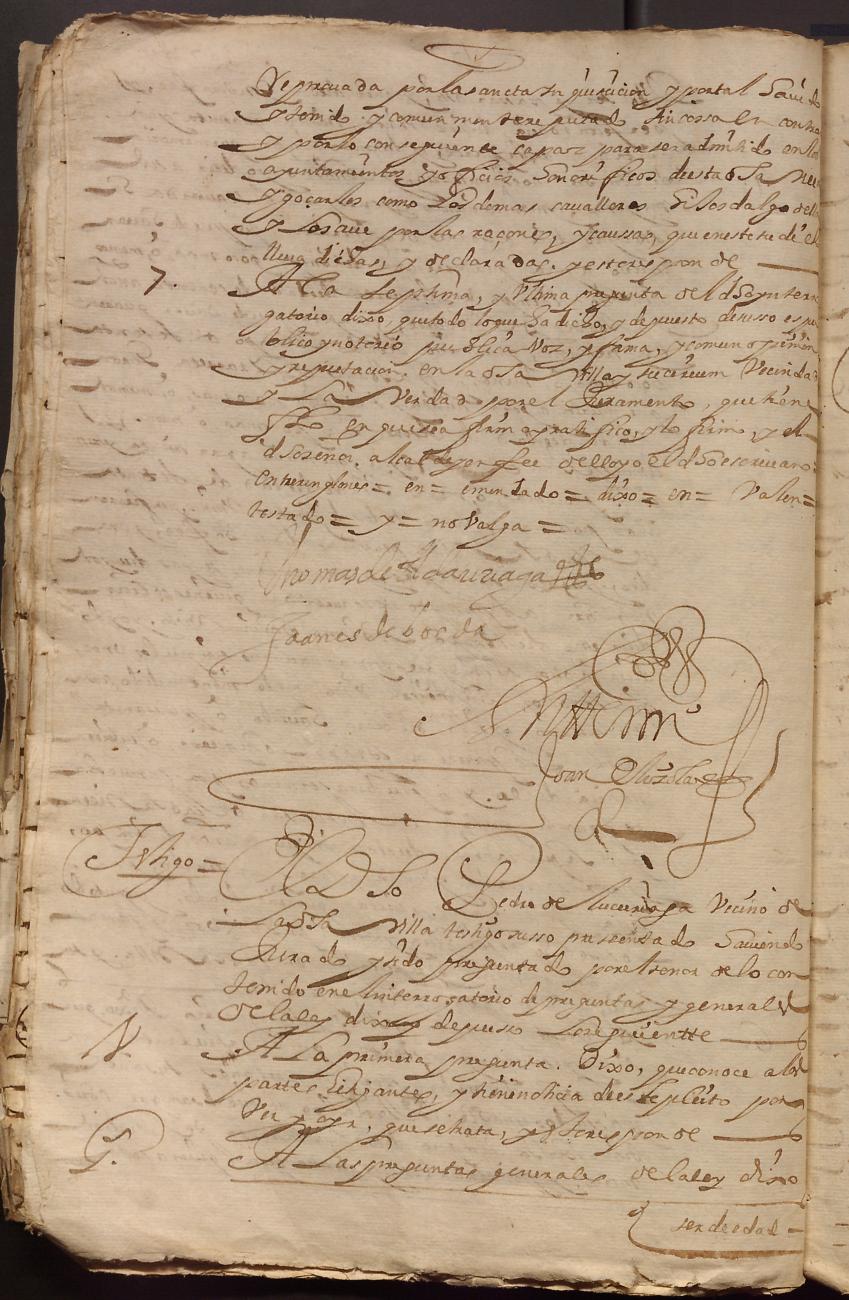 Reprovada por la sancta Inquisicion y por tal Havido
y tenido y comunmente reputado sin cossa en contra
y por lo consiguiente capaz para ser admitido en los
ayuntamientos y officios Honorificos de esta dha
y goçarles como los demas cavalleros Hijosdalgo della
y Los que por las raçones, y caussas, que en este de el
lleva dichas, y declaradas. y esto responde
7. A La septima, y Ultima pregunta del dho ynterro
gatorio dixo, que todo lo que ha dicho, y depuesto de suso es pu
blico y notorio publica Voz, y fama, y comun opinion
y reputacion en la dha Villa y su Vecindad
y La Verdad por el Juramento, que tiene
fho en que se afirmo y ratifico, y lo firmo, y el
dho señor alcalde y en fee de ello yo el dho escrivano
Entrerenglones = en = emendado = dixo = en = Valen =
testado = y = no Valga =
Thomas de
Joanes de borda
Ante mi
Joan
Testigo = El dho Pedro de Vecino de
la dha Villa testigo susso presentado Haviendo
Jurado y sido preguntado por el tenor de lo con
tenido en el interrogatorio de preguntas y generales
de la ley dixo y depuso lo siguiente
1. A La primera pregunta. Dixo, que conoce a las
partes litigantes, y tiene noticia de este pleito por
Ver y oyr, que se trata, y esto responde
G. A Las preguntas generales de la ley dixo
ser de edad